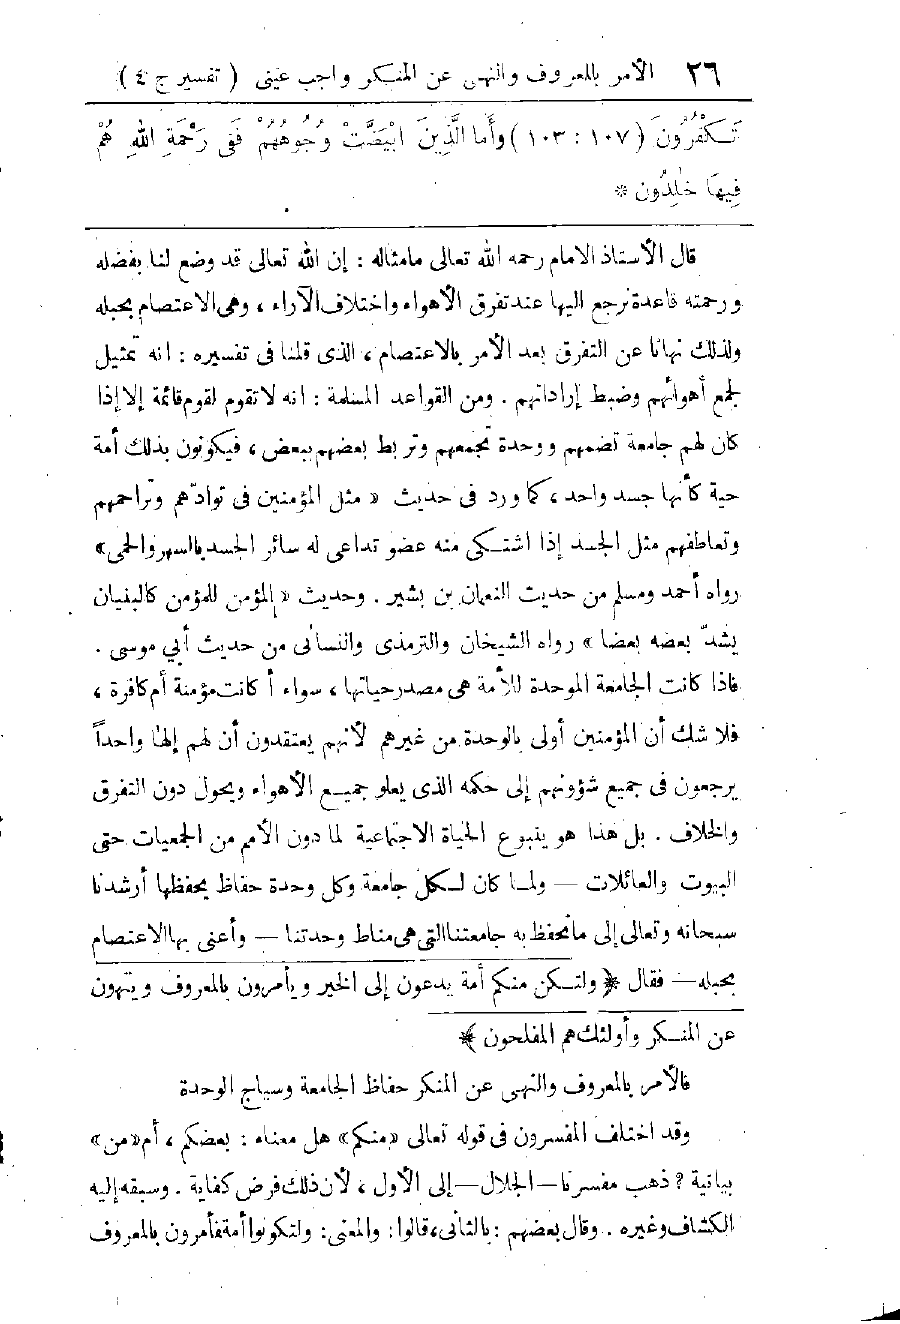 ٢٦ الأمر بالمعروف والنهى عن المنكر واجب عينى ( تفسير ج ٤ )
تَكْفُرُونَ ( ١٠٧ : ١٠٣ ) وأَما الَّذِينَ ابْيَضَّتْ وُجُوهُهُمْ فَفِى رَحْمَةِ اللهِ هُمْ
فِيهَا خٰلِدُون *
قال الأستاذ الامام رحمه الله تعالى مامثاله : إن الله تعالى قد وضع لنا بفضله
ورحمته قاعدة نرجع اليها عند تفرق الأهواء واختلاف الآراء ، وهى الاعتصام بحبله
ولذلك نهانا عن التفرق بعد الأمر بالاعتصام ، الذى قلنا فى تفسيره : انه تمثيل
لجمع أهوائهم وضبط إراداتهم . ومن القواعد المسلمة : انه لا تقوم لقوم قائمة إلا إذا
كان لهم جامعة تضمهم ووحدة تجمعهم وتربط بعضهم ببعض ، فيكونون بذلك أمة
حية كأنها جسد واحد ، كما ورد فى حديث « مثل المؤمنين فى توادّهم وتراحمهم
وتعاطفهم مثل الجسد إذا اشتكى منه عضو تداعى له سائر الجسد بالسهر والحمى »
رواه أحمد ومسلم من حديث النعمان بن بشير . وحديث « المؤمن للمؤمن كالبنيان
يشدّ بعضه بعضا » رواه الشيخان والترمذى والنسائى من حديث أبي موسى .
فاذا كانت الجامعة الموحدة للأمة هى مصدر حياتها ، سواء أكانت مؤمنة أم كافرة ،
فلا شك أن المؤمنين أولى بالوحدة من غيرهم لأنهم يعتقدون أن لهم إلها واحداً
يرجعون فى جميع شؤونهم إلى حكمه الذى يعلو جميع الأهواء ويحول دون التفرق
والخلاف . بل هذا هو ينبوع الحياة الاجتماعية لما دون الأمم من الجمعيات حتى
البيوت والعائلات — ولما كان لكل جامعة وكل وحدة حفاظ يحفظها أرشدنا
سبحانه وتعالى إلى مانحفظ به جامعتنا التى هى مناط وحدتنا — وأعنى بها الاعتصام
بحبله — فقال ﴿ ولتكن منكم أمة يدعون إلى الخير ويأمرون بالمعروف وينهون
عن المنكر وأولئك هم المفلحون ﴾
فالأمر بالمعروف والنهى عن المنكر حفاظ الجامعة وسياج الوحدة
وقد اختلف المفسرون فى قوله تعالى «منكم» هل معناه : بعضكم ، أم «من»
بيانية ? ذهب مفسرنا — الجلال — إلى الأول ، لأن ذلك فرض كفاية . وسبقه إليه
الكشاف وغيره . وقال بعضهم : بالثانى ، قالوا : والمعنى : ولتكونوا أمة تأمرون بالمعروف